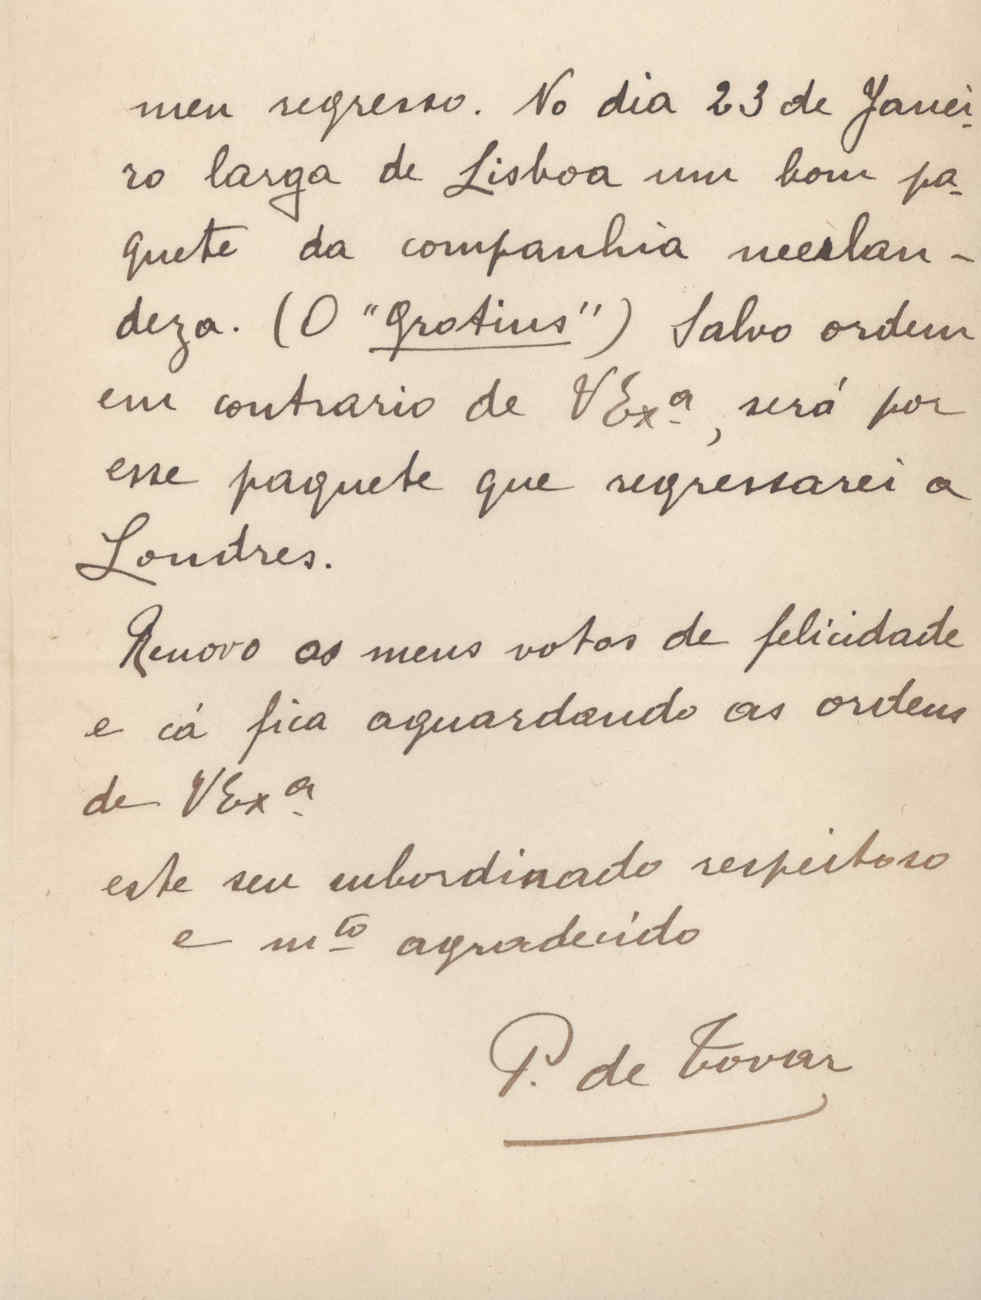 meu regresso. No dia 23 de Janei-
ro larga de Lisboa um bom pa-
quete da companhia neerlan-
deza. (O "Grotius") Salvo ordem
em contrario de VExª, será por
esse paquete que regressarei a
Londres.
Renovo os meus votos de felicidade
e cá fica aguardando as ordens
de VExª
este seu subordinado respeitoso
e mto agradecido
P. de Tovar